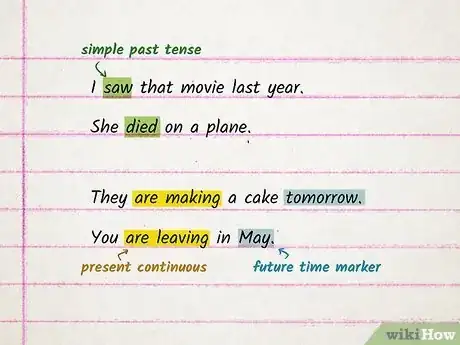 simple past tense
I saw that movie last year.
She died on a plane.
They are making a cake tomorrow.
You are leaving in May.
present continuous
future time marker
wikiHow